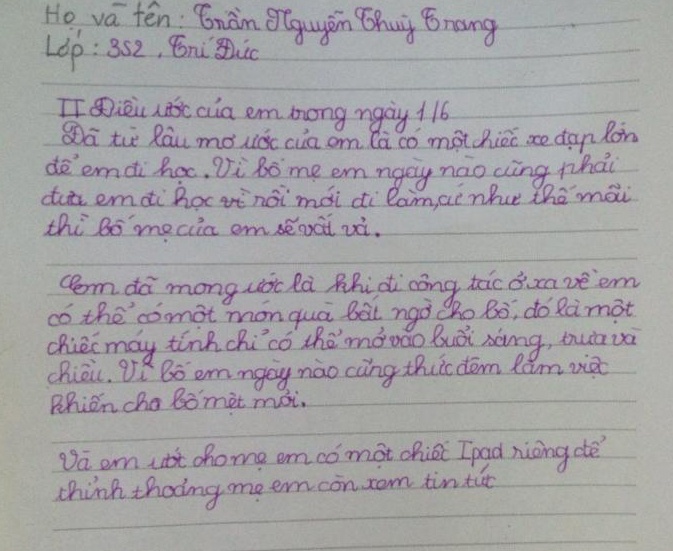 Họ và tên: Trần Nguyễn Thuỳ Trang
Lớp: 3S2, Trí Đức
II Điều ước của em trong ngày 1/6
Đã từ lâu mơ ước của em là có một chiếc xe đạp lớn
để em đi học. Vì bố mẹ em ngày nào cũng phải
đưa em đi học về rồi mới đi làm, cứ như thế mãi
thì bố mẹ của em sẽ vất vả.
Em đã mong ước là khi đi công tác ở xa về em
có thể có một món quà bất ngờ cho bố, đó là một
chiếc máy tính chỉ có thể mở vào buổi sáng, trưa và
chiều. Vì bố em ngày nào cũng thức đêm làm việc
khiến cho bố mệt mỏi.
Và em ước cho mẹ em có một chiếc Ipad riêng để
thỉnh thoảng mẹ em còn xem tin tức